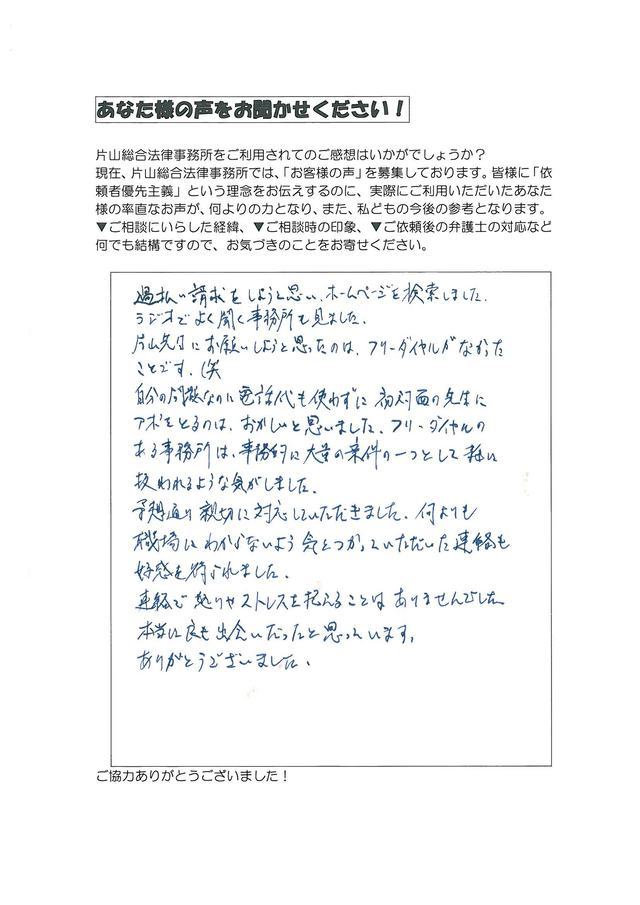 あなた様の声をお聞かせください！
片山総合法律事務所をご利用されてのご感想はいかがでしょうか？
現在、片山総合法律事務所では、「お客様の声」を募集しております。皆様に「依
頼者優先主義」という理念をお伝えするのに、実際にご利用いただいたあなた
様の率直なお声が、何よりの力となり、また、私どもの今後の参考となります。
▼ご相談にいらした経緯、▼ご相談時の印象、▼ご依頼後の弁護士の対応など
何でも結構ですので、お気づきのことをお寄せください。
過払い請求をしようと思い、ホームページを検索しました。
ラジオでよく聞く事務所も見ました。
片山先生にお願いしようと思ったのは、フリーダイヤルがなかった
ことです。(笑
自分の問題なのに電話代も使わずに初対面の先生に
アポをとるのは、おかしいと思いました。フリーダイヤルの
ある事務所は、事務的に大量の案件の一つとして雑に
扱われるような気がしました。
予想通り親切に対応していただきました。何よりも
職場にわからないよう気をつかっていただいた連絡も
好感を持たれました。
連絡で怒りやストレスを抱えることはありませんでした
本当に良も出会いだったと思っています。
ありがとうございました。
ご協力ありがとうございました！